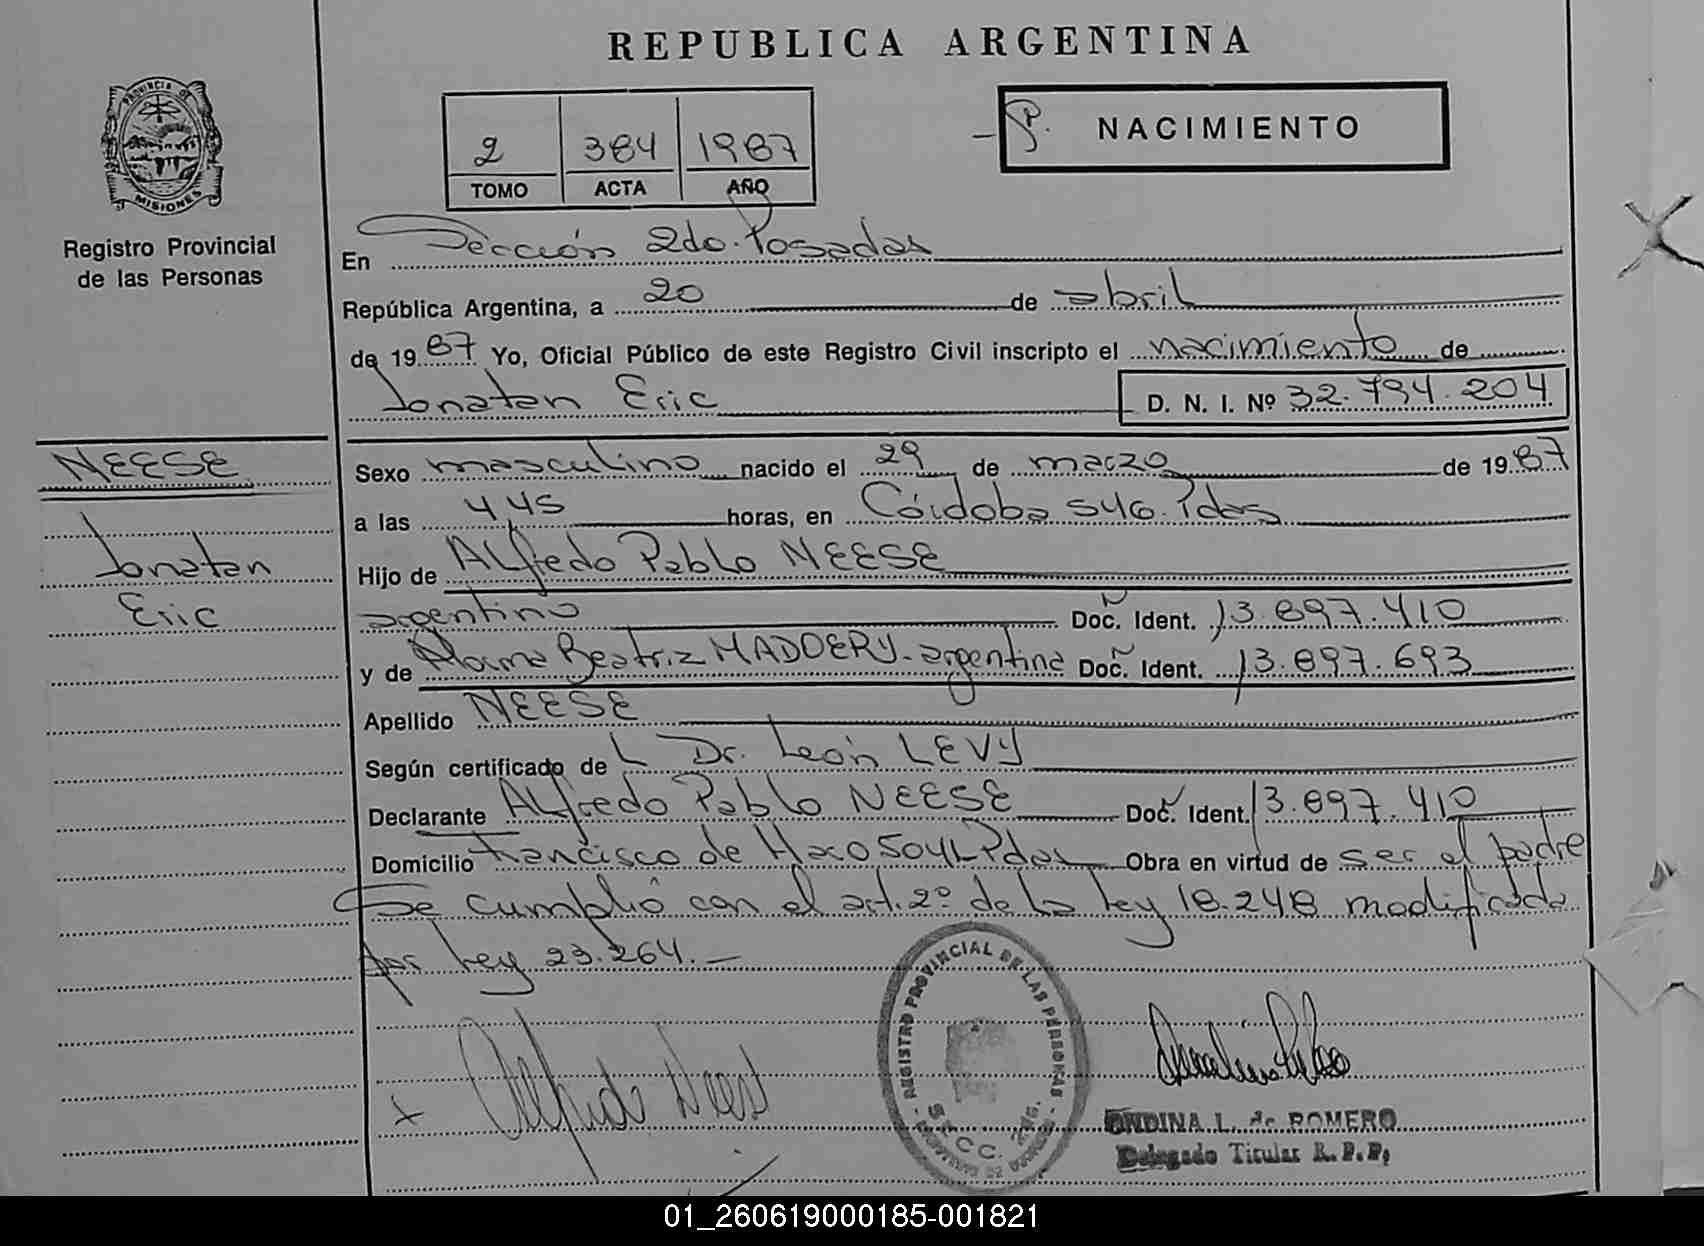 REPUBLICA ARGENTINA
PROVINCIA DE
MISIONES
Registro Provincial
de las Personas
2 384 1987
TOMO ACTA AÑO
NACIMIENTO
En Sección 2do. Posadas
República Argentina, a 20 de abril
de 1987 Yo, Oficial Público de este Registro Civil inscripto el nacimiento de
Jonatan Eric D. N. I. Nº 32.794.204
NEESE
Jonatan
Eric
Sexo masculino nacido el 29 de marzo de 1987
a las 445 horas, en Córdoba 546. Pdas
Hijo de Alfredo Pablo NEESE
argentino Doc. Ident. 13.897.410
y de Beatriz MADOERY - argentina Doc. Ident. 13.897.693
Apellido NEESE
Según certificado de L Dr. León LEVY
Declarante Alfredo Pablo NEESE Doc. Ident. 13.897.410
Domicilio Francisco de Haro 5041 Pdas Obra en virtud de ser el padre
Se cumplió con el art. 2º de la ley 18.248 modificada
por ley 23.264.—
REGISTRO PROVINCIAL DE LAS PERSONAS
SECC. 2da.
x Alfredo Neese
ONDINA L. de ROMERO
Delegado Titular R.P.P.
01_260619000185-001821